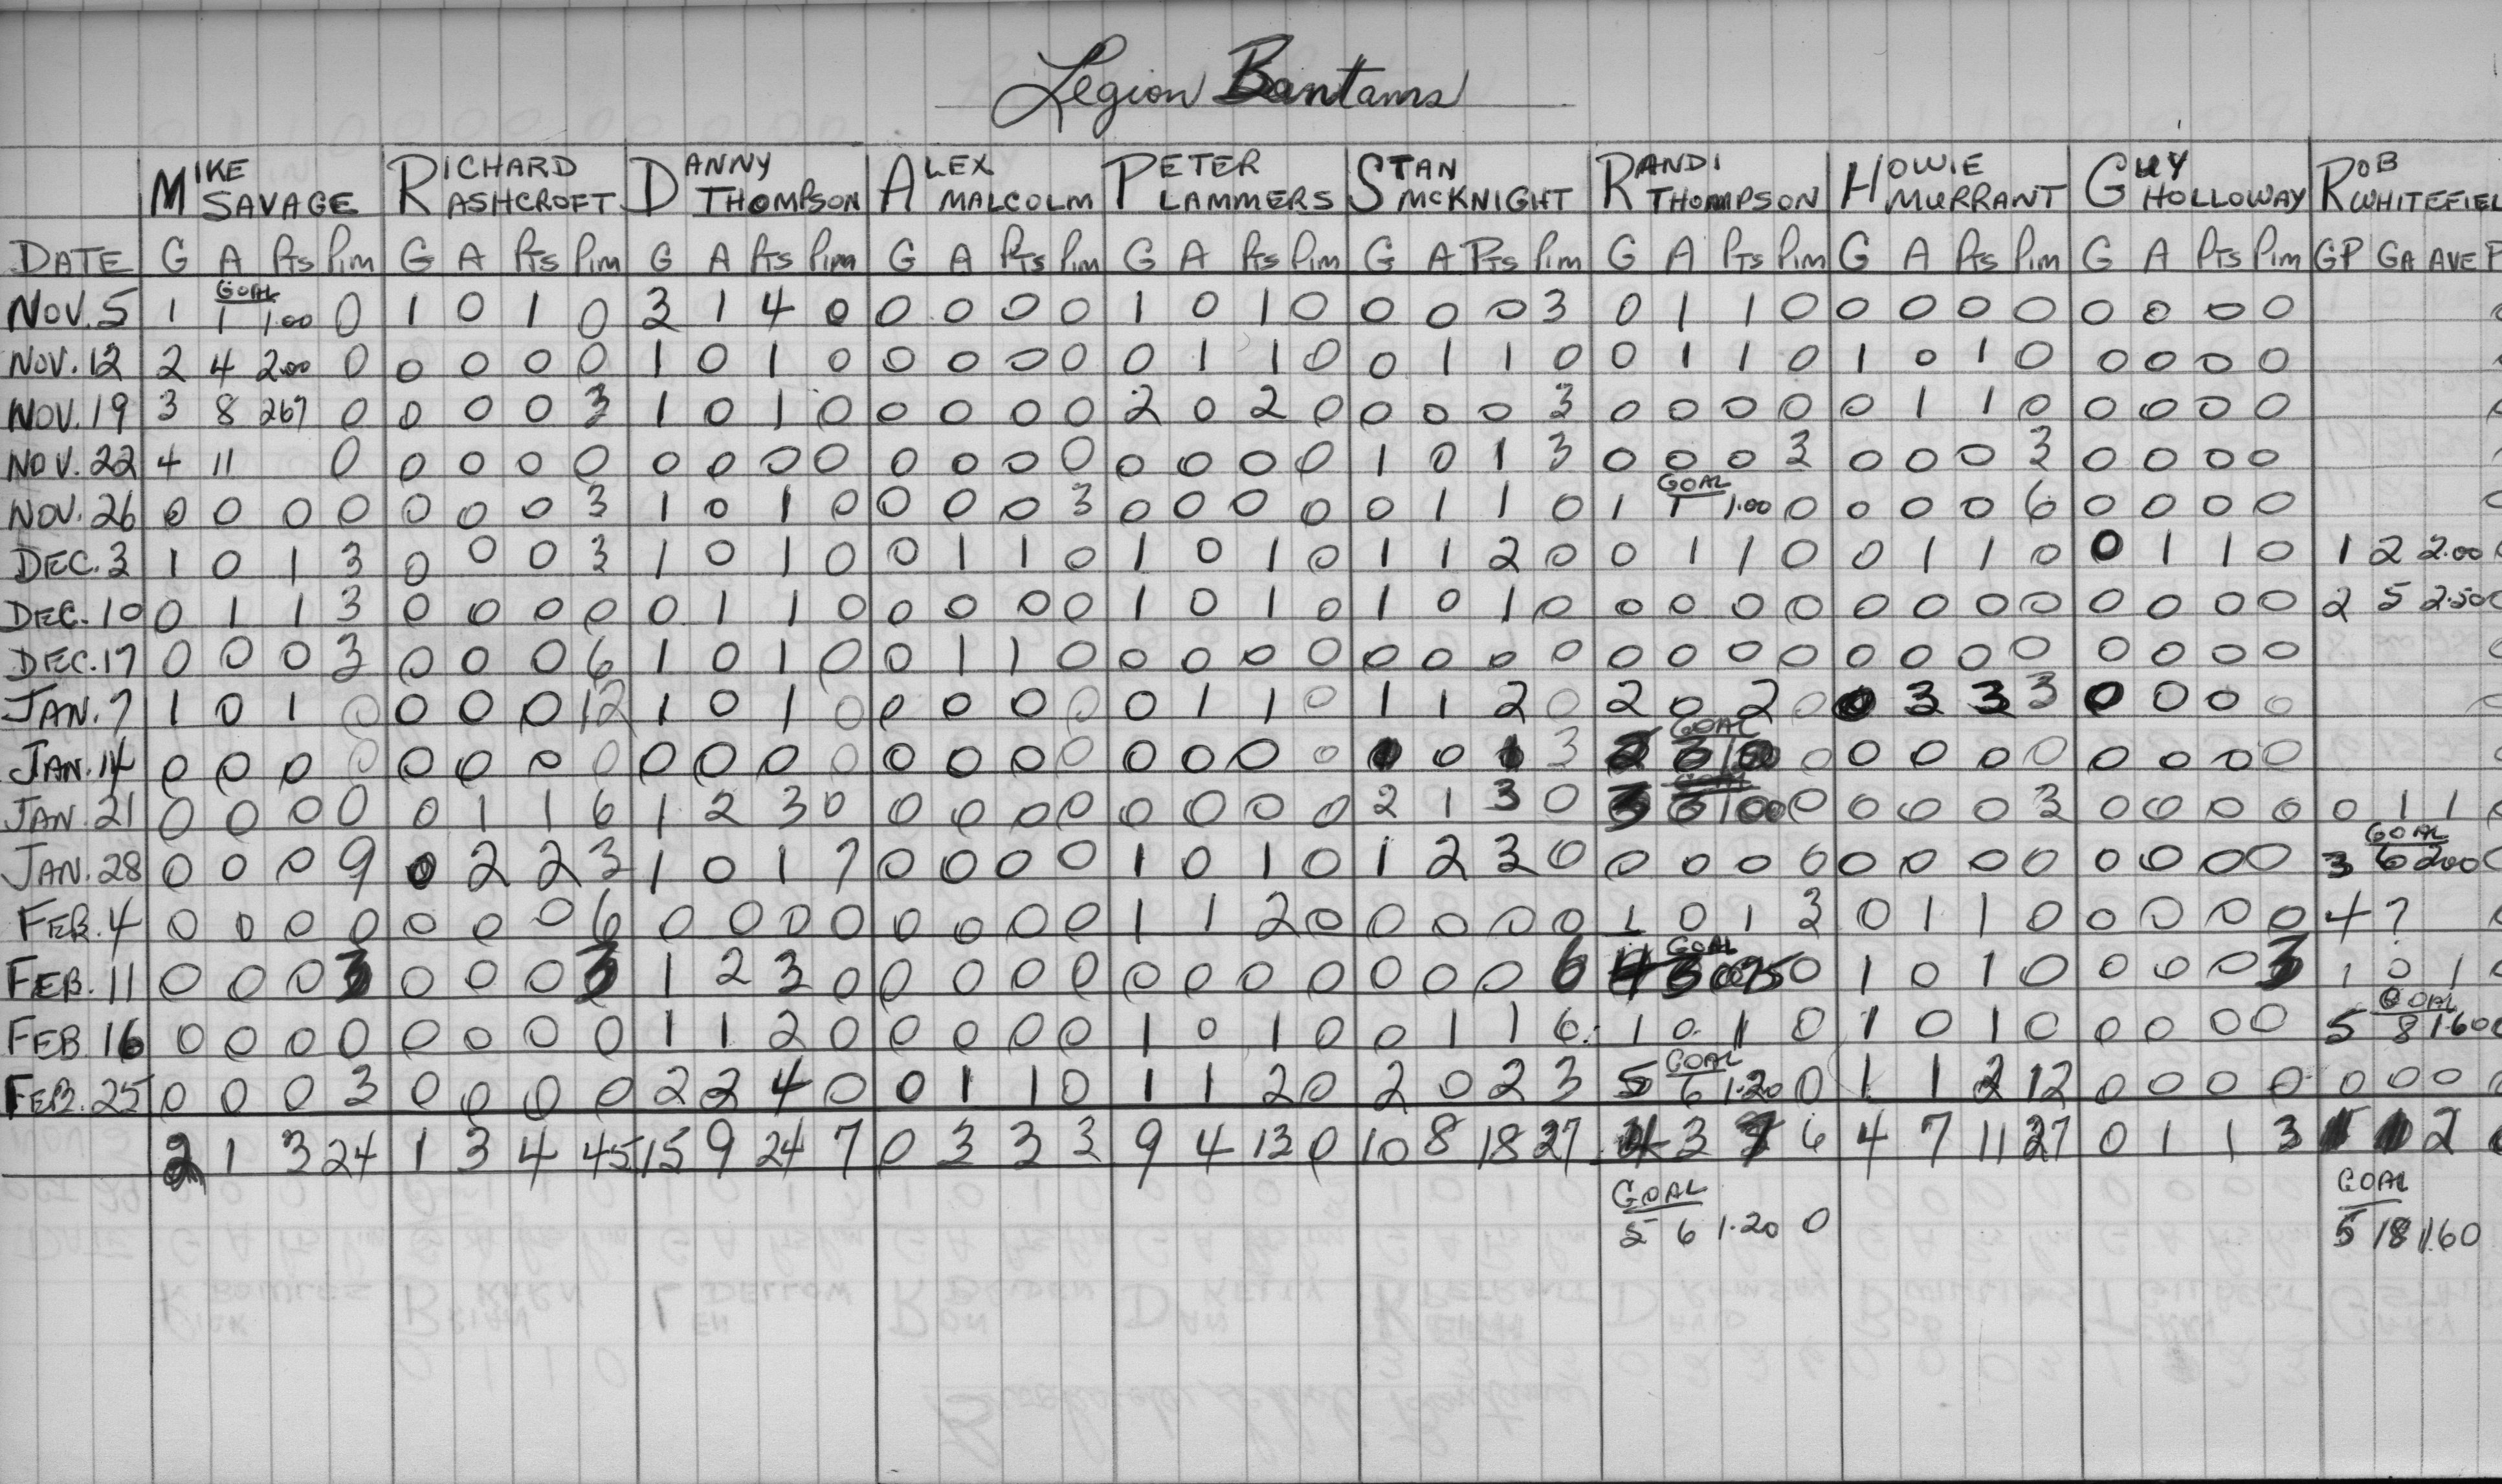 Legion Bantams
MIKE SAVAGE RICHARD ASHCROFT DANNY THOMPSON ALEX MALCOLM PETER LAMMERS STAN MCKNIGHT RANDI THOMPSON HOWIE MURRANT GUY HOLLOWAY ROB WHITEFIEL
DATE G A Pts Pim G A Pts Pim G A Pts Pim G A Pts Pim G A Pts Pim G A Pts Pim G A Pts Pim G A Pts Pim G A Pts Pim GP GA AVE P
GOAL
NOV. 5 1 1 1.00 0 1 0 1 0 3 1 4 0 0 0 0 0 1 0 1 0 0 0 0 3 0 1 1 0 0 0 0 0 0 0 0 0
NOV. 12 2 4 2.00 0 0 0 0 0 1 0 1 0 0 0 0 0 0 1 1 0 0 1 1 0 0 1 1 0 1 0 1 0 0 0 0 0
NOV. 19 3 8 267 0 0 0 0 3 1 0 1 0 0 0 0 0 2 0 2 0 0 0 0 3 0 0 0 0 0 1 1 0 0 0 0 0
NOV. 22 4 11 0 0 0 0 0 0 0 0 0 0 0 0 0 0 0 0 0 1 0 1 3 0 0 0 3 0 0 0 3 0 0 0 0
GOAL
NOV. 26 0 0 0 0 0 0 0 3 1 0 1 0 0 0 0 3 0 0 0 0 0 1 1 0 1 1 1.00 0 0 0 0 6 0 0 0 0
DEC. 3 1 0 1 3 0 0 0 3 1 0 1 0 0 1 1 0 1 0 1 0 1 1 2 0 0 1 1 0 0 1 1 0 0 1 1 0 1 2 2.00
DEC. 10 0 1 1 3 0 0 0 0 0 1 1 0 0 0 0 0 1 0 1 0 1 0 1 0 0 0 0 0 0 0 0 0 0 0 0 0 2 5 2.50
DEC. 17 0 0 0 3 0 0 0 6 1 0 1 0 0 1 1 0 0 0 0 0 0 0 0 0 0 0 0 0 0 0 0 0 0 0 0 0
JAN. 7 1 0 1 0 0 0 0 12 1 0 1 0 0 0 0 0 0 1 1 0 1 1 2 0 2 0 2 0 0 3 3 3 0 0 0 0
GOAL
JAN. 14 0 0 0 0 0 0 0 0 0 0 0 0 0 0 0 0 0 0 0 0 1 0 1 3 2 0 0 0 0 0 0 0 0 0
JAN. 21 0 0 0 0 0 1 1 6 1 2 3 0 0 0 0 0 0 0 0 0 2 1 3 0 3 0 0 0 0 3 0 0 0 0 0 1 1
GOAL
JAN. 28 0 0 0 9 0 2 2 3 1 0 1 7 0 0 0 0 1 0 1 0 1 2 3 0 0 0 0 0 0 0 0 0 0 0 0 0 3 6 200
FEB. 4 0 0 0 0 0 0 0 6 0 0 0 0 0 0 0 0 1 1 2 0 0 0 0 0 1 0 1 3 0 1 1 0 0 0 0 0 4 7
GOAL
FEB. 11 0 0 0 3 0 0 0 3 1 2 3 0 0 0 0 0 0 0 0 0 0 0 0 6 4 3 0 1 0 1 0 0 0 0 3 1 0 1
GOAL
FEB. 16 0 0 0 0 0 0 0 0 1 1 2 0 0 0 0 0 1 0 1 0 0 1 1 6 1 0 1 0 1 0 1 0 0 0 0 0 5 8 1.60
GOAL
FEB. 25 0 0 0 3 0 0 0 0 2 2 4 0 0 1 1 0 1 1 2 0 2 0 2 3 5 6 1.20 0 1 1 2 12 0 0 0 0 0 0 0
2 1 3 24 1 3 4 45 15 9 24 7 0 3 3 3 9 4 13 0 10 8 18 27 4 3 7 6 4 7 11 27 0 1 1 3 1 1 2
GOAL GOAL
5 6 1.20 0 5 18 1.60